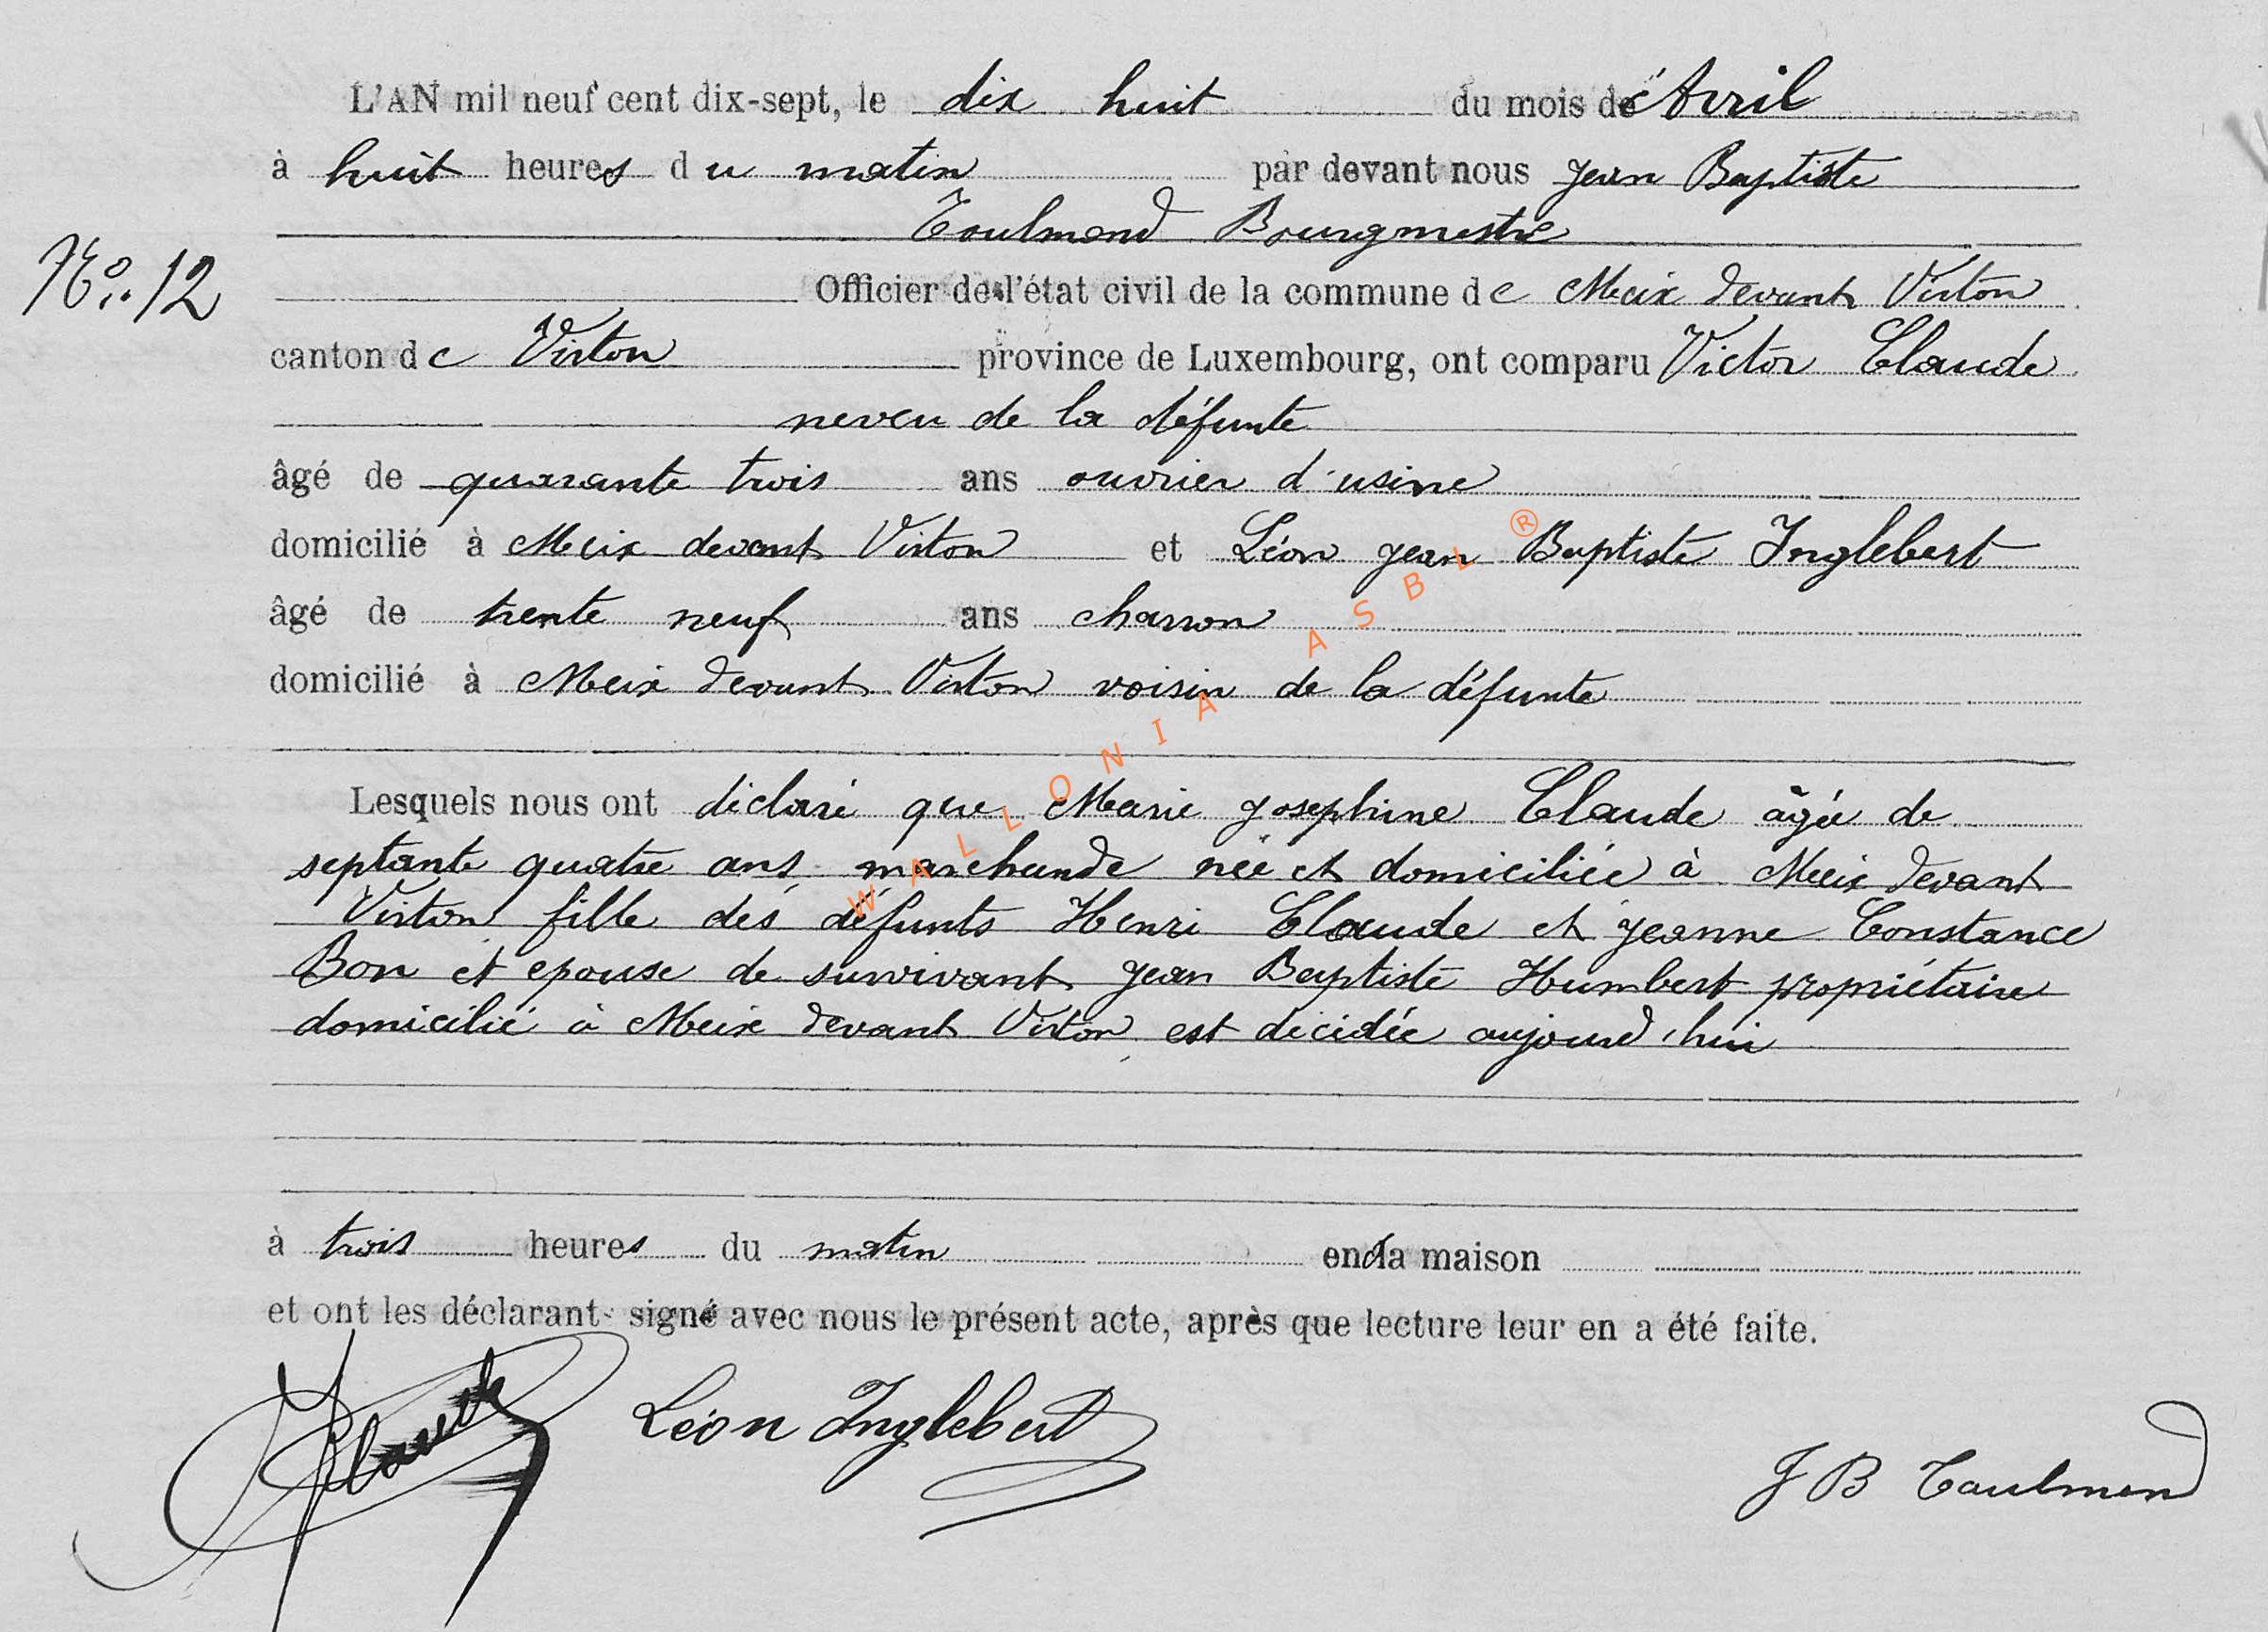 L'AN mil neuf cent dix-sept, le dix huit du mois d'Avril
à huit heures du matin par devant nous Jean Baptiste
Toulmond Bourgmestre
No. 12
Officier de l'état civil de la commune de Meix devant Virton
canton de Virton province de Luxembourg, ont comparu Victor Claude
neveu de la défunte
âgé de quarante trois ans ouvrier d'usine
domicilié à Meix devant Virton et Léon Jean Baptiste Inglebert
âgé de trente neuf ans charron
domicilié à Meix devant Virton voisin de la défunte
WALLONIA ASBL ®
Lesquels nous ont déclaré que Marie Josephine Claude âgée de
septante quatre ans marchande née et domiciliée à Meix devant
Virton fille des défunts Henri Claude et Jeanne Constance
Bon et epouse de survivant Jean Baptiste Humbert propriétaire
domicilié à Meix devant Virton est décidée aujourd'hui
à trois heures du matin en la maison
et ont les déclarant signé avec nous le présent acte, après que lecture leur en a été faite.
Claude Léon Inglebert
J B Toulmond